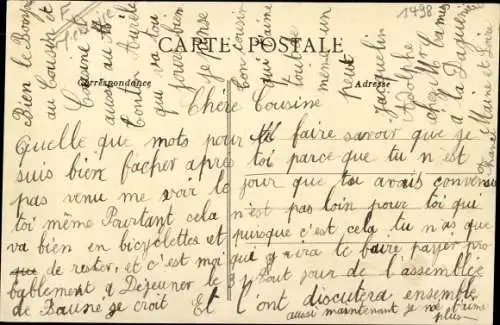 1498
CARTE POSTALE
Correspondance
Adresse
Chère Cousine
Quelle que mots pour te faire savoir que je
suis bien facher après toi parce que tu n'est
pas venu me voir le jour que tu avais convenu
toi même Pourtant cela n'est pas loin pour toi qui
va bien en bicyclettes et puisque c'est cela tu n'as que
de rester, et c'est moi qui y'ira te faire payer pro
bablement a Déjeuner le 3 p. tout jour de l'assemblée
de Bauné je croit Et l'ont discutera ensemble
aussi maintenant je ne t'aime
plus
Bien le Bonjour
au Cousin et
Cousine
aussi au
Cousin Aurèle
qui va tou
jours bien
je pense
ton cousin
qui t'aime
tout de
même un
peut
Jacquelin
Adolphe
chez Mr Camus
a la Daguenière
Maine et Loire